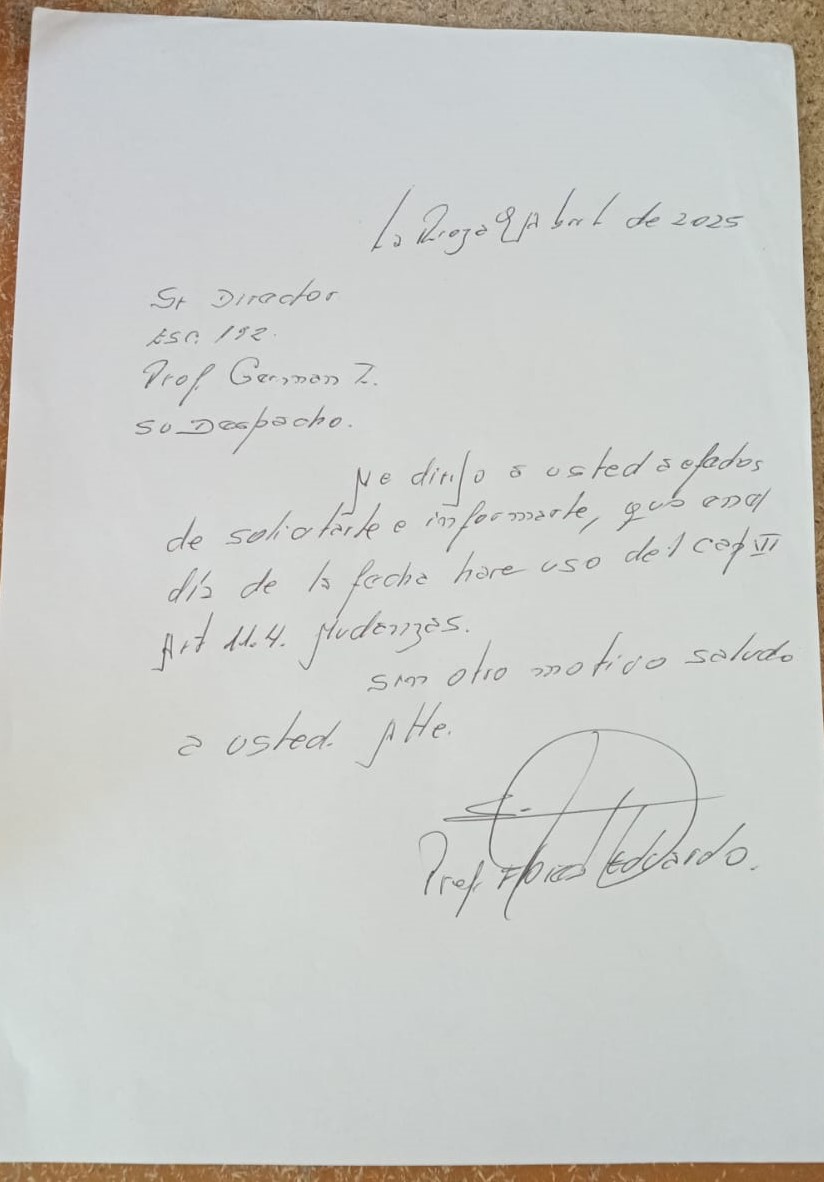 La Rioja 9 Abril de 2025
Sr Director
Esc. 192.
Prof. German Z.
Su Despacho.
Me dirijo a usted a efados
de solicitarte e informarte, que en el
día de la fecha hare uso del cap VI
Art 11.4. Mudanzas.
Sin otro motivo saludo
a usted. Atte.
Prof. Flores Eduardo.